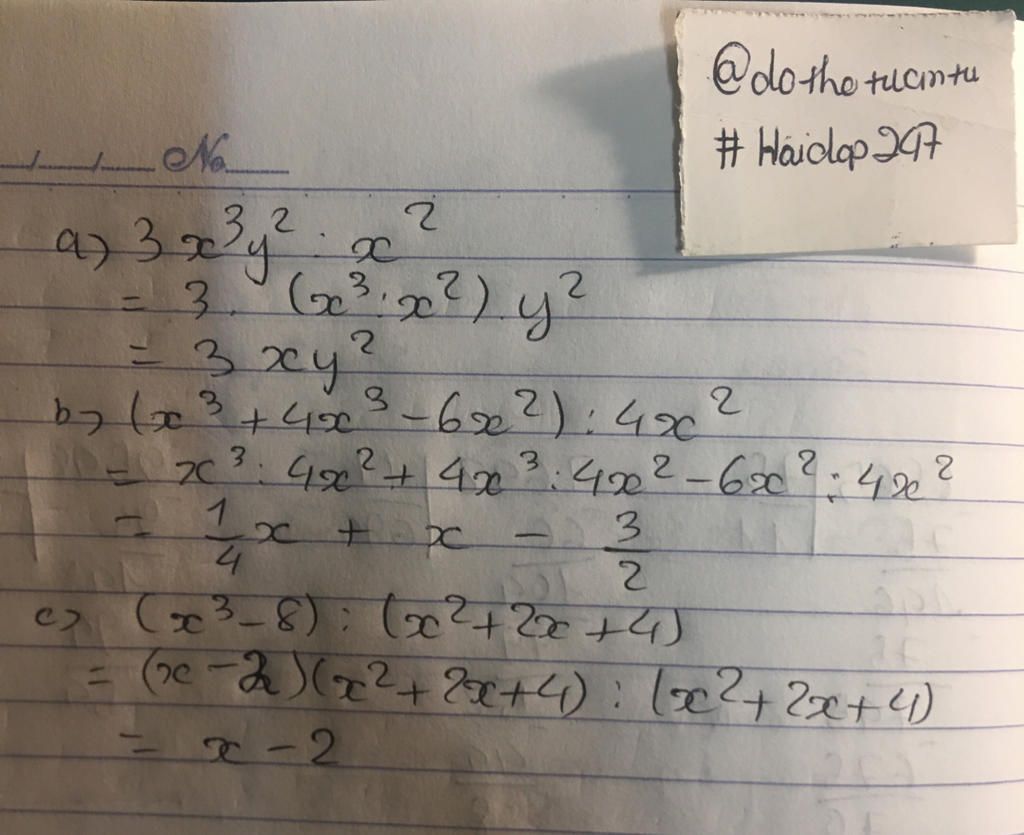 @dothetuantu
# Hoidap247
No
a) 3x³y² : x²
= 3. (x³:x²).y²
= 3xy²
b) (x³ + 4x³ - 6x²) : 4x²
= x³ : 4x² + 4x³ : 4x² - 6x² : 4x²
= 1/4 x + x - 3/2
c) (x³ - 8) : (x² + 2x + 4)
= (x - 2)(x² + 2x + 4) : (x² + 2x + 4)
= x - 2